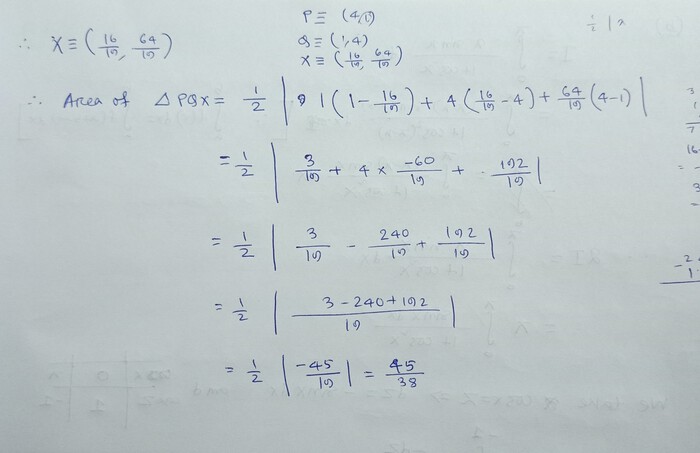 P ≡ (4,1)
Q ≡ (1,4)
∴ X ≡ (16/19, 64/19) X ≡ (16/19, 64/19)
1/2 |
∴ Area of △PQX = 1/2 | 1(1 - 16/19) + 4(16/19 - 4) + 64/19 (4-1) |
= 1/2 | 3/19 + 4 × -60/19 + 192/19 |
= 1/2 | 3/19 - 240/19 + 192/19 |
= 1/2 | 3 - 240 + 192 / 19 |
= 1/2 | -45/19 | = 45/38